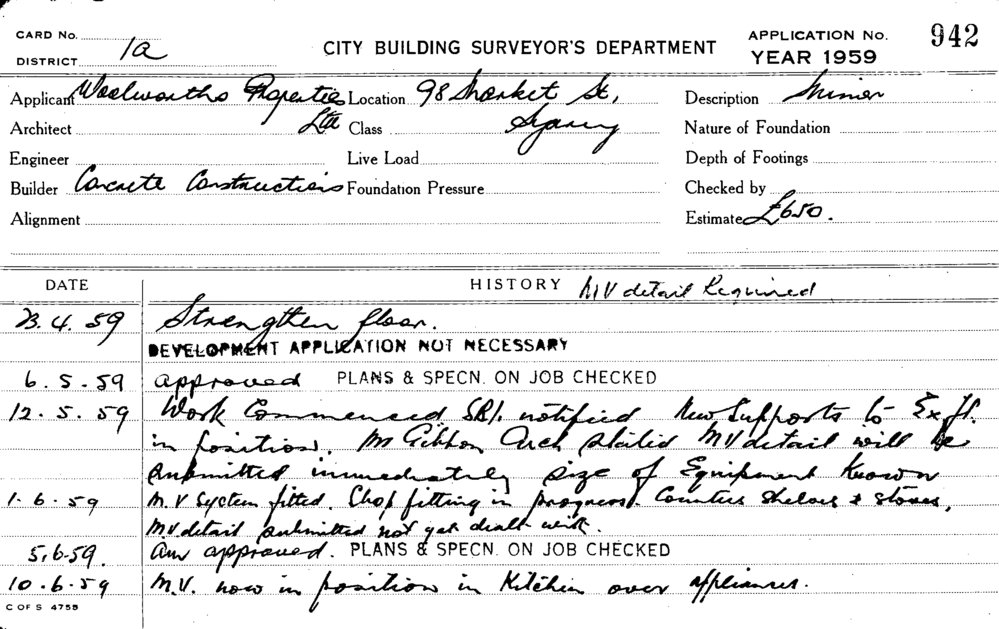 CARD No.
DISTRICT 1a
CITY BUILDING SURVEYOR'S DEPARTMENT
APPLICATION No. 942
YEAR 1959
Applicant Woolworths Properties Ltd
Location 98 Market St, Sydney
Description Minor
Architect
Class
Nature of Foundation
Engineer
Live Load
Depth of Footings
Builder Concrete Constructions
Foundation Pressure
Checked by
Alignment
Estimate £650.
DATE
HISTORY MV detail Required
23.4.59 Strengthen floor.
DEVELOPMENT APPLICATION NOT NECESSARY
6.5.59 approved PLANS & SPECN. ON JOB CHECKED
12.5.59 Work Commenced notified New Supports to Ex. fl.
in position. Mr Gibbon Arch stated MV detail will be
submitted immediately size of Equipment known
1.6.59 M.V System fitted. Shop fitting in progress. Counters Shelves & Stoves,
MV detail submitted not yet dealt with.
5.6.59. approved. PLANS & SPECN. ON JOB CHECKED
10.6.59 M.V. now in position in Kitchen over appliances.
C OF S 4755